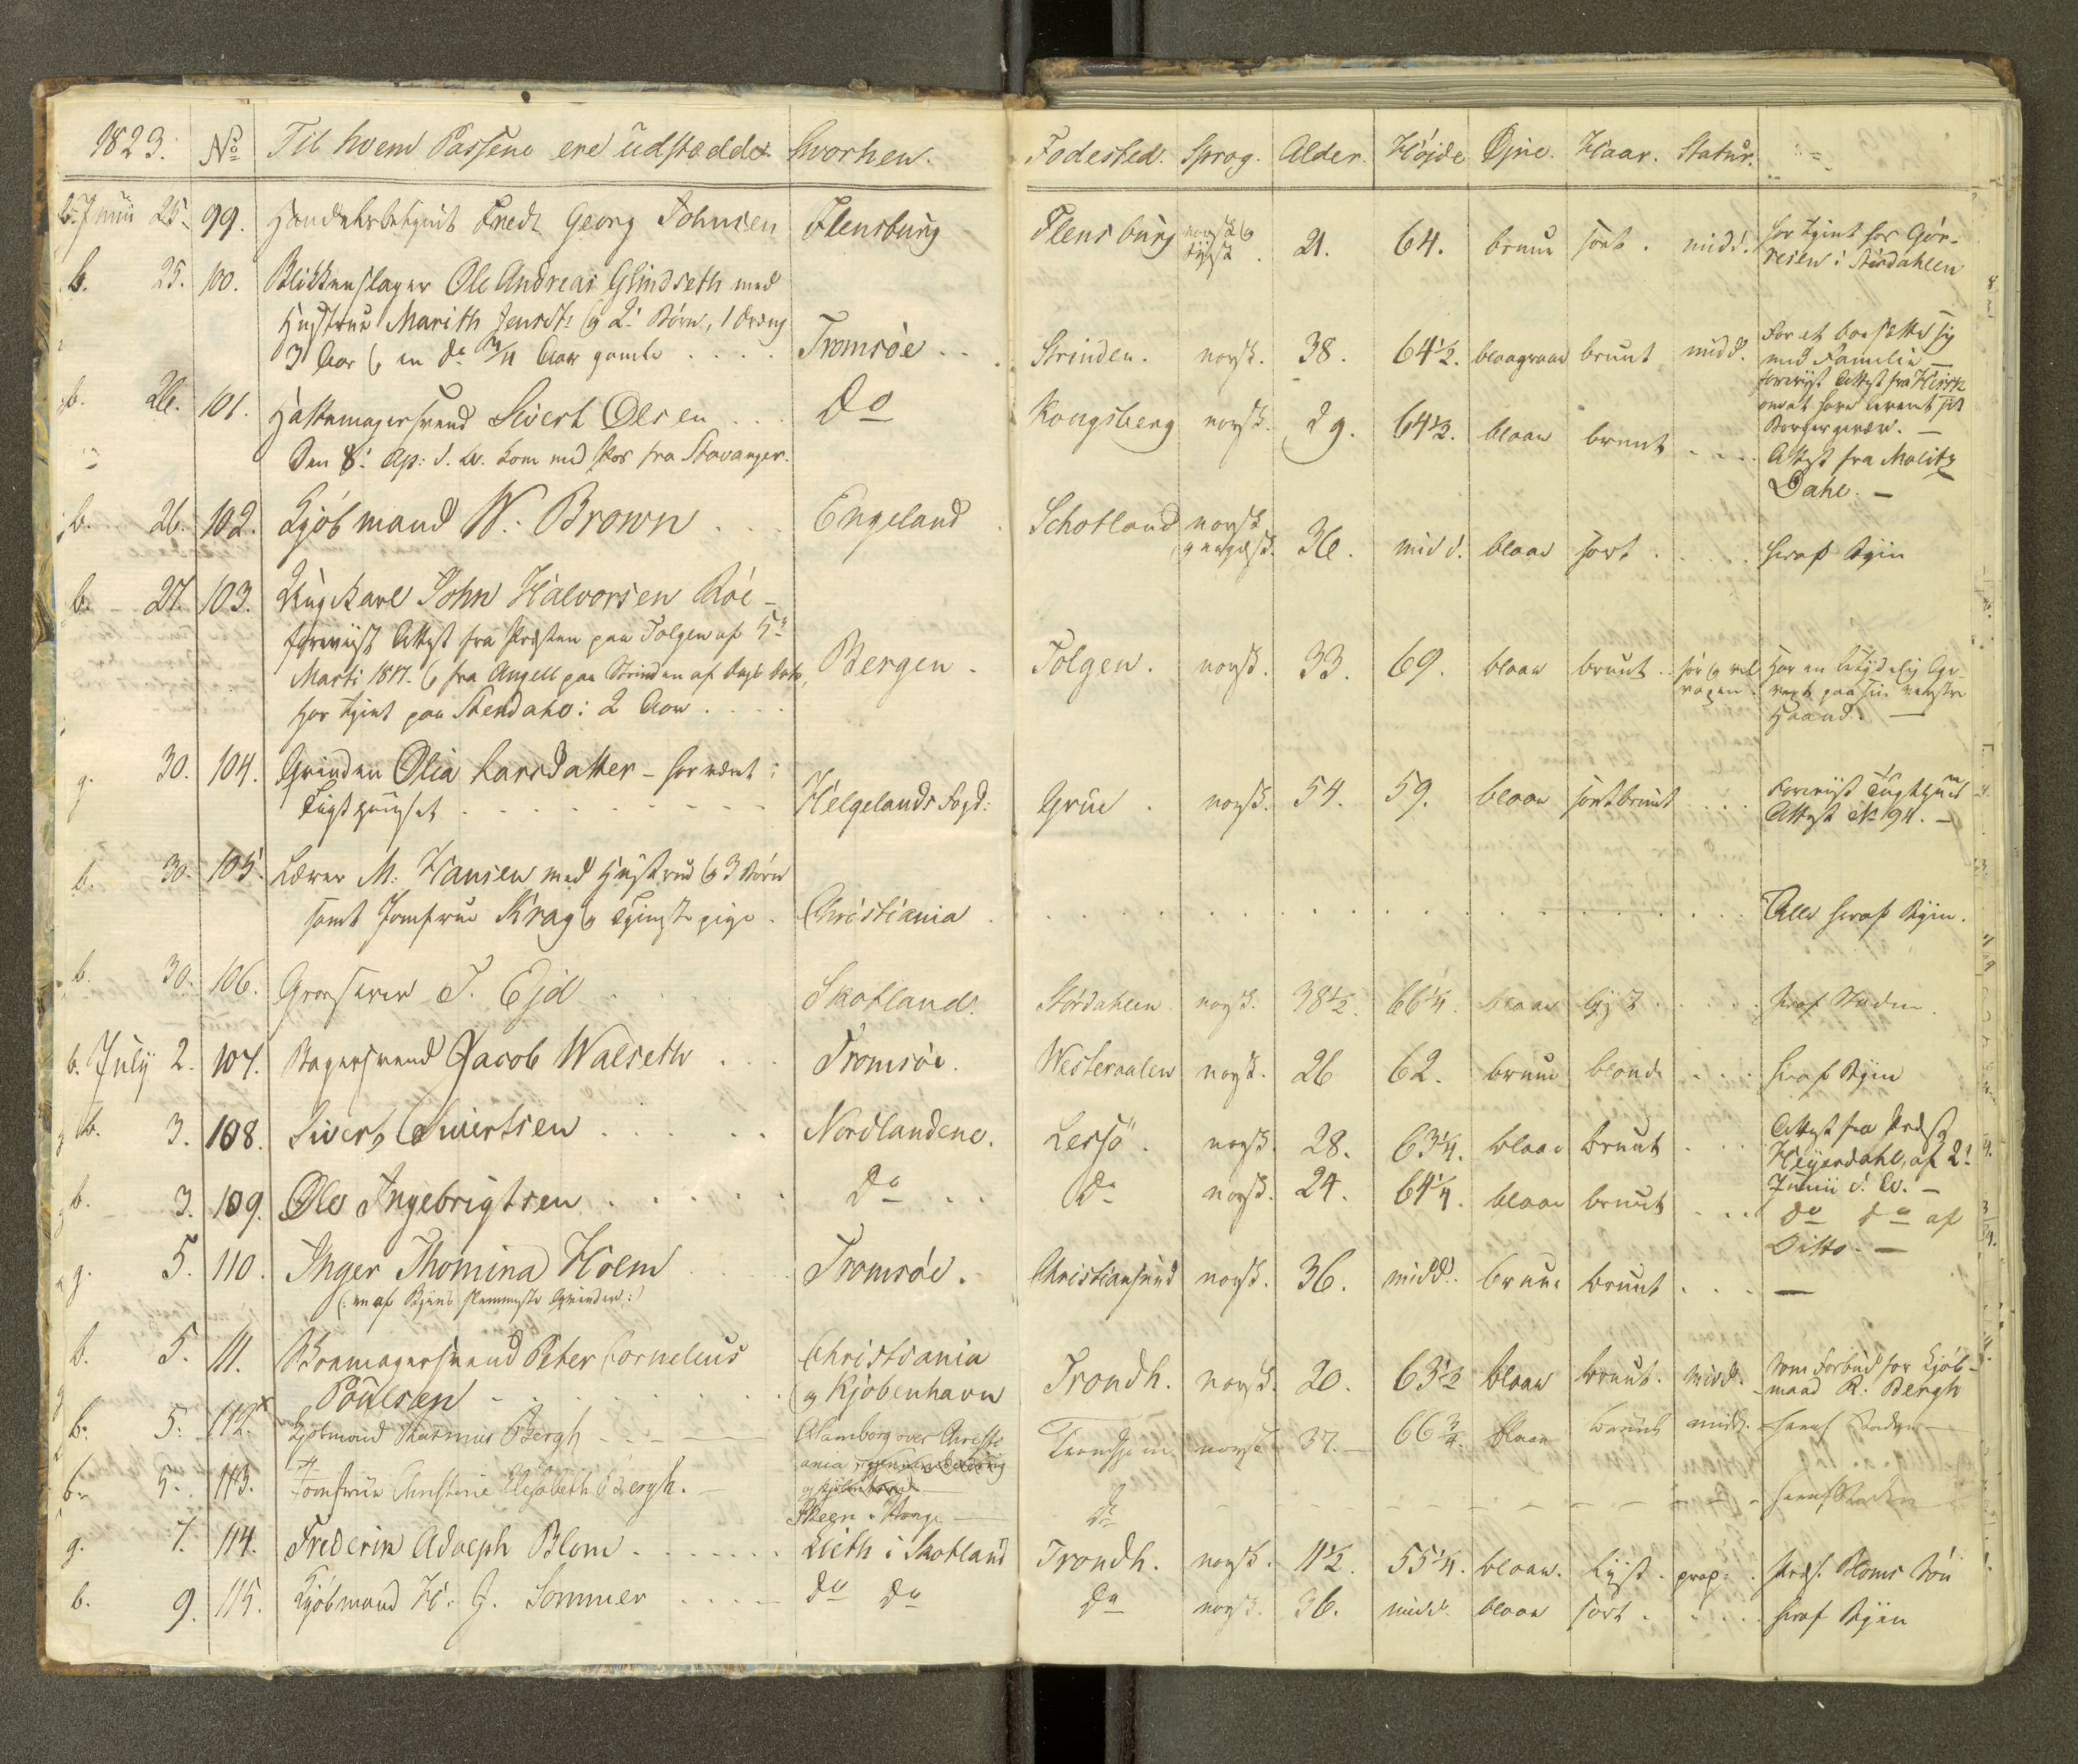 1823. No Til hvem Passene ere udstædde. hvorhen. Fødested. Sprog. Alder. Højde Øjne. Haar. Statur.
b. Junii 25. 99. Handelsbetjent Fredr Georg Johnsen Flensburg Flensburg norsk og tydsk. 21. 64. bruun sort. midd. har tjent hos Gör-
resen i Stördahlen
b. 25. 100. Blikkenslager Ole Andreas Glindseth med
Hustrue Marith Jensdt: og 2 Børn, 1 dreng
3 Aar og en do 3/4 Aar gamle .... Tromsöe .. Strinden. norsk. 38. 64 1/2. blaagraae bruunt midd. For at bosætte sig
med Familie —
b. 26. 101. Hattemagersvend Sivert Olsen ... Do Kongsberg norsk. 29. 64 1/2. blaae bruunt .... foreviist Attest fra Hirsch
om at have leveret sit
Borgergevær. —
Den 8. Ap: d. A. kom med Pas fra Stavanger. Attest fra Moltz
Dahl. —
b. 26. 102. Kjöbmand W. Brown ... Engeland Schotland norsk
og engelsk. 36. midd. blaae sort. ... heraf Byen
b. 27. 103. Ungkarl John Halvorsen Röe —
foreviist Attest fra Præsten paa Tolgen af 5te
Marti 1817. og fra Angell paa Strinden af Dags Dato,
har tjent paa Stendahl i 2 Aar .... Bergen. Tolgen. norsk. 33. 69. blaae bruunt.. før og vel
voxen. Har en betydelig
paa sin venstre
Haand. —
g. 30. 104. Qvinden Olia Larsdatter - har været i
Tugthuuset ......... Helgelands Fogd: Grue. norsk. 54. 59. blaae sortbruunt .... Foreviist Tugthuus
Attest No 194. —
b. 30. 105. Lærer M. Hansen med Hustrue og 3 Børn
samt Jomfrue Krag og Tjenestepige. Christiania ............ Alle heraf Byen.
b. 30. 106. Grosserer J. Ejd ..... Skotland. Stördahlen norsk. 38 1/2. 66 1/4. blaae lyst .... heraf Staden.
b. July 2. 107. Bagersvend Jacob Walseth ... Tromsöe. Westeraalen norsk. 26 62. bruune blond. .... heraf Byen
b. 3. 108. Sivert Sivertsen ...... Nordlandene. Lessö. norsk. 28. 63 1/4. blaae bruunt ... Attest fra Præst
Heyerdahl, af 2.
Junii d. A. —
b. 3. 109. Ole Ingebrigtsen ...... Do .. Do norsk. 24. 64 1/4. blaae bruunt ... do do af
Ditto. —
g. 5. 110. Inger Thomina Holm .... Tromsöe. Christiansund norsk. 36. midd. bruune bruunt .... —
(: en af Byens slemmeste Qvinder :)
b. 5. 111. Peter Cornelius
Poulsen ........ Christiania
og Kjöbenhavn Trondh. norsk. 20. 63 1/2 blaae bruunt. midd. som Forbud for Kjöb-
mand R. Bergh
b. 5. 112. Kjöbmand Rasmus Bergh ---- Hamborg over Christi
ania Trondhjem norsk 37. — 66 3/4. blaae bruunt midd. heraf Staden —
b. 5. 113. Jomfrue Christine Elisabeth Bergh. —
Skeen i Norge — Do -------- heraf Staden
g. 7. 114. Frederik Adolph Blom ....... Lieth i Skotland Trondh. norsk. 11 1/2. 55 1/4. blaae. Lyst. prop. . Bloms Sön
b. 9. 115. Kjöbmand H. J. Sommer ..... do do Do norsk. 36. midd. blaae sort. .... heraf Byen